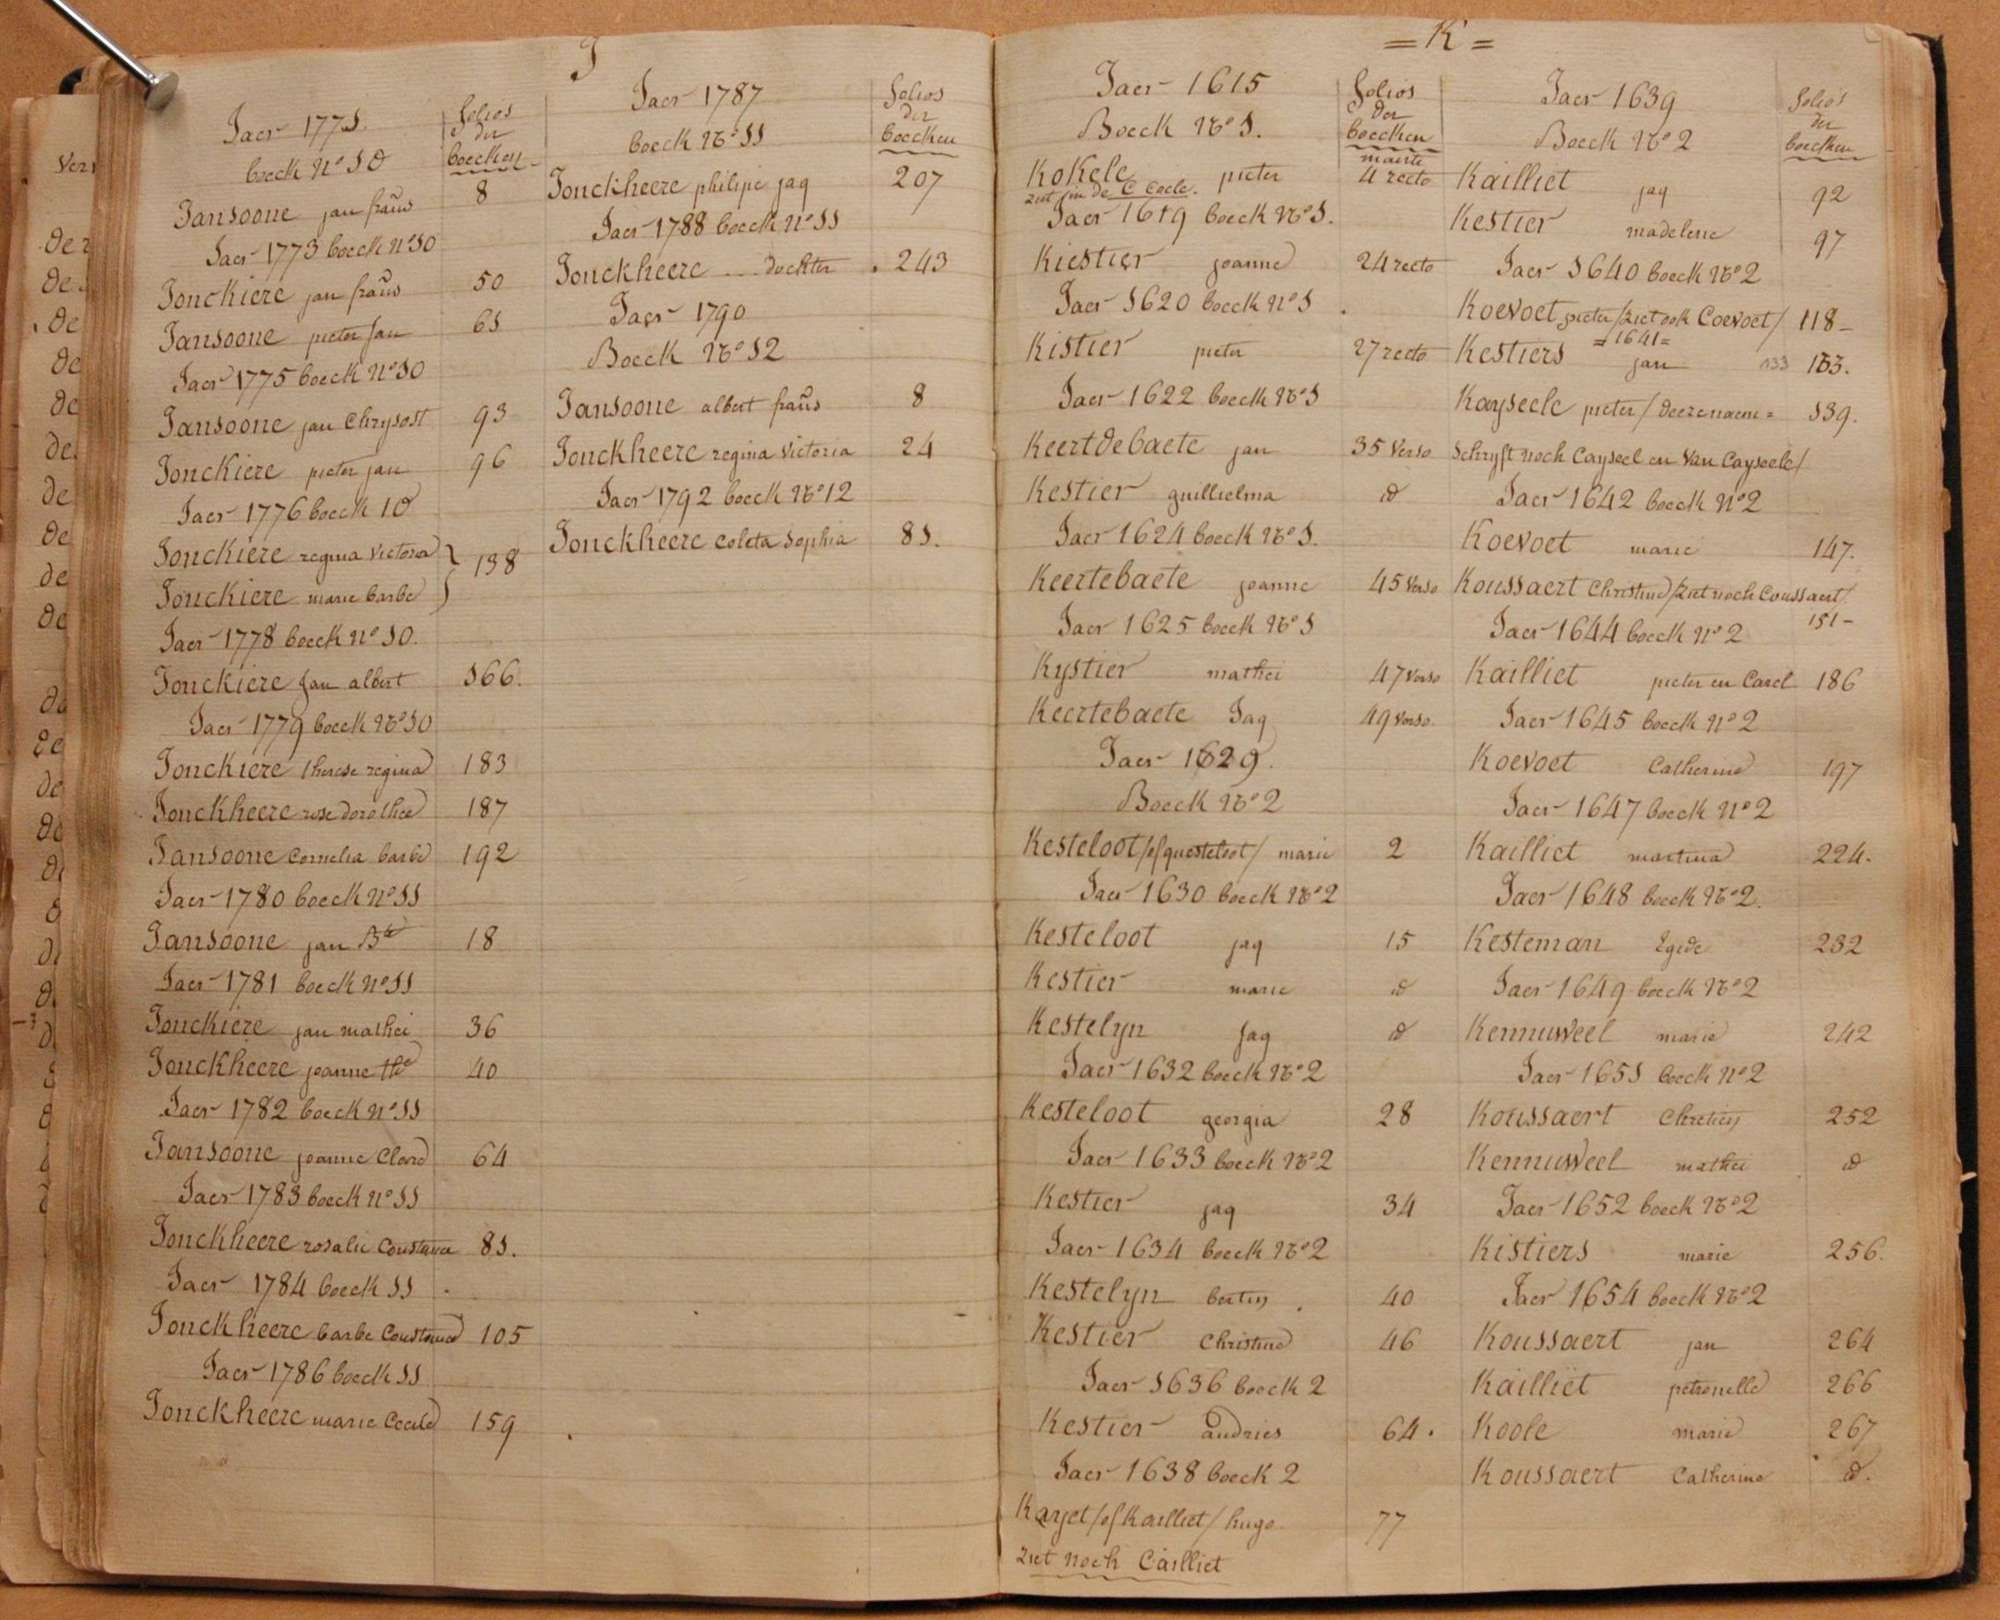 J
Jaer 1771.
boeck No 10
folios der boecken
Jansoone jan fraũs 8
Jaer 1773 boeck No 10
Jonckiere jan fraũs 50
Jansoone pieter Jan 61
Jaer 1775 boeck No 10
Jansoone jan Chrysost 93
Jonckiere pieter jan 96
Jaer 1776 boeck 10
Jonckiere regina Victoria } 138
Jonckiere marie barbe }
Jaer 1778 boeck No 10.
Jonckiere Jan albert 166.
Jaer 1779 boeck No 10
Jonckiere therese regina 183
Jonckheere rose dorothee 187
Jansoone Cornelia barbe 192
Jaer 1780 boeck No 11
Jansoone jan Bte 18
Jaer 1781 boeck No 11
Jonckiere jan mathei 36
Jonckheere joanne the 40
Jaer 1782 boeck No 11
Jansoone joanne Clare 64
Jaer 1783 boeck No 11
Jonckheere rosalie Constance 81.
Jaer 1784 boeck 11
Jonckheere barbe Constance 105
Jaer 1786 boeck 11
Jonckheere marie Cecile 159
Jaer 1787
boeck No 11
folios der boecken
Jonckheere philipe jaq 207
Jaer 1788 boeck No 11
Jonckheere ... dochter 243
Jaer 1790
Boeck No 12
Jansoone albert fraũs 8
Jonckheere regina Victoria 24
Jaer 1792 boeck No 12
Jonckheere Coleta Sophia 81.
= K =
Jaer 1615
Boeck No 1.
folios der boecken
Kokele pieter 4 recto
ziet in de C Cocle.
Jaer 1619 boeck No 1.
Kiestier joanne 24 recto
Jaer 1620 boeck No 1
Kistier pieter 27 recto
Jaer 1622 boeck No 1
Keertdebaete jan 35 Verso
Kestier guillielma id
Jaer 1624 boeck No 1.
Keertebaete joanne 45 Verso
Jaer 1625 boeck No 1
Kystier mathei 47 Verso
Keertebaete Jaq 49 Verso
Jaer 1629.
Boeck No 2
Kesteloot /of questeloot/ marie 2
Jaer 1630 boeck No 2
Kesteloot jaq 15
Kestier marie id
Kestelyn Jaq id
Jaer 1632 boeck No 2
Kesteloot georgia 28
Jaer 1633 boeck No 2
Kestier jaq 34
Jaer 1634 boeck No 2
Kestelyn bertin 40
Kestier Christine 46
Jaer 1636 boeck 2
Kestier andries 64.
Jaer 1638 boeck 2
Kayet /of Kailliet/ hugo 77
ziet noch Cailliet
Jaer 1639
Boeck No 2
folios der boecken
Kailliet jaq 92
Kestier madelene 97
Jaer 1640 boeck No 2
Koevoet pieter /ziet ook Coevoet/ 118
= 1641 =
Kestiers jan 133 133.
Kayseele pieter /deezenaem= 139.
Schryft noch Cayseel en Van Cayseele/
Jaer 1642 boeck No 2
Koevoet marie 147.
Koussaert Christine /ziet noch Coussaert/
151
Jaer 1644 boeck No 2
Kailliet pieter en Carel 186
Jaer 1645 boeck No 2
Koevoet Catherine 197
Jaer 1647 boeck No 2
Kailliet martina 224.
Jaer 1648 boeck No 2.
Kesteman Egide 232
Jaer 1649 boeck No 2
Kennuweel marie 242
Jaer 1651 boeck No 2
Koussaert Chretien 252
Kennuweel mathei id
Jaer 1652 boeck No 2
Kistiers marie 256.
Jaer 1654 boeck No 2
Koussaert jan 264
Kailliet petronelle 266
Koole marie 267
Koussaert Catherine id.